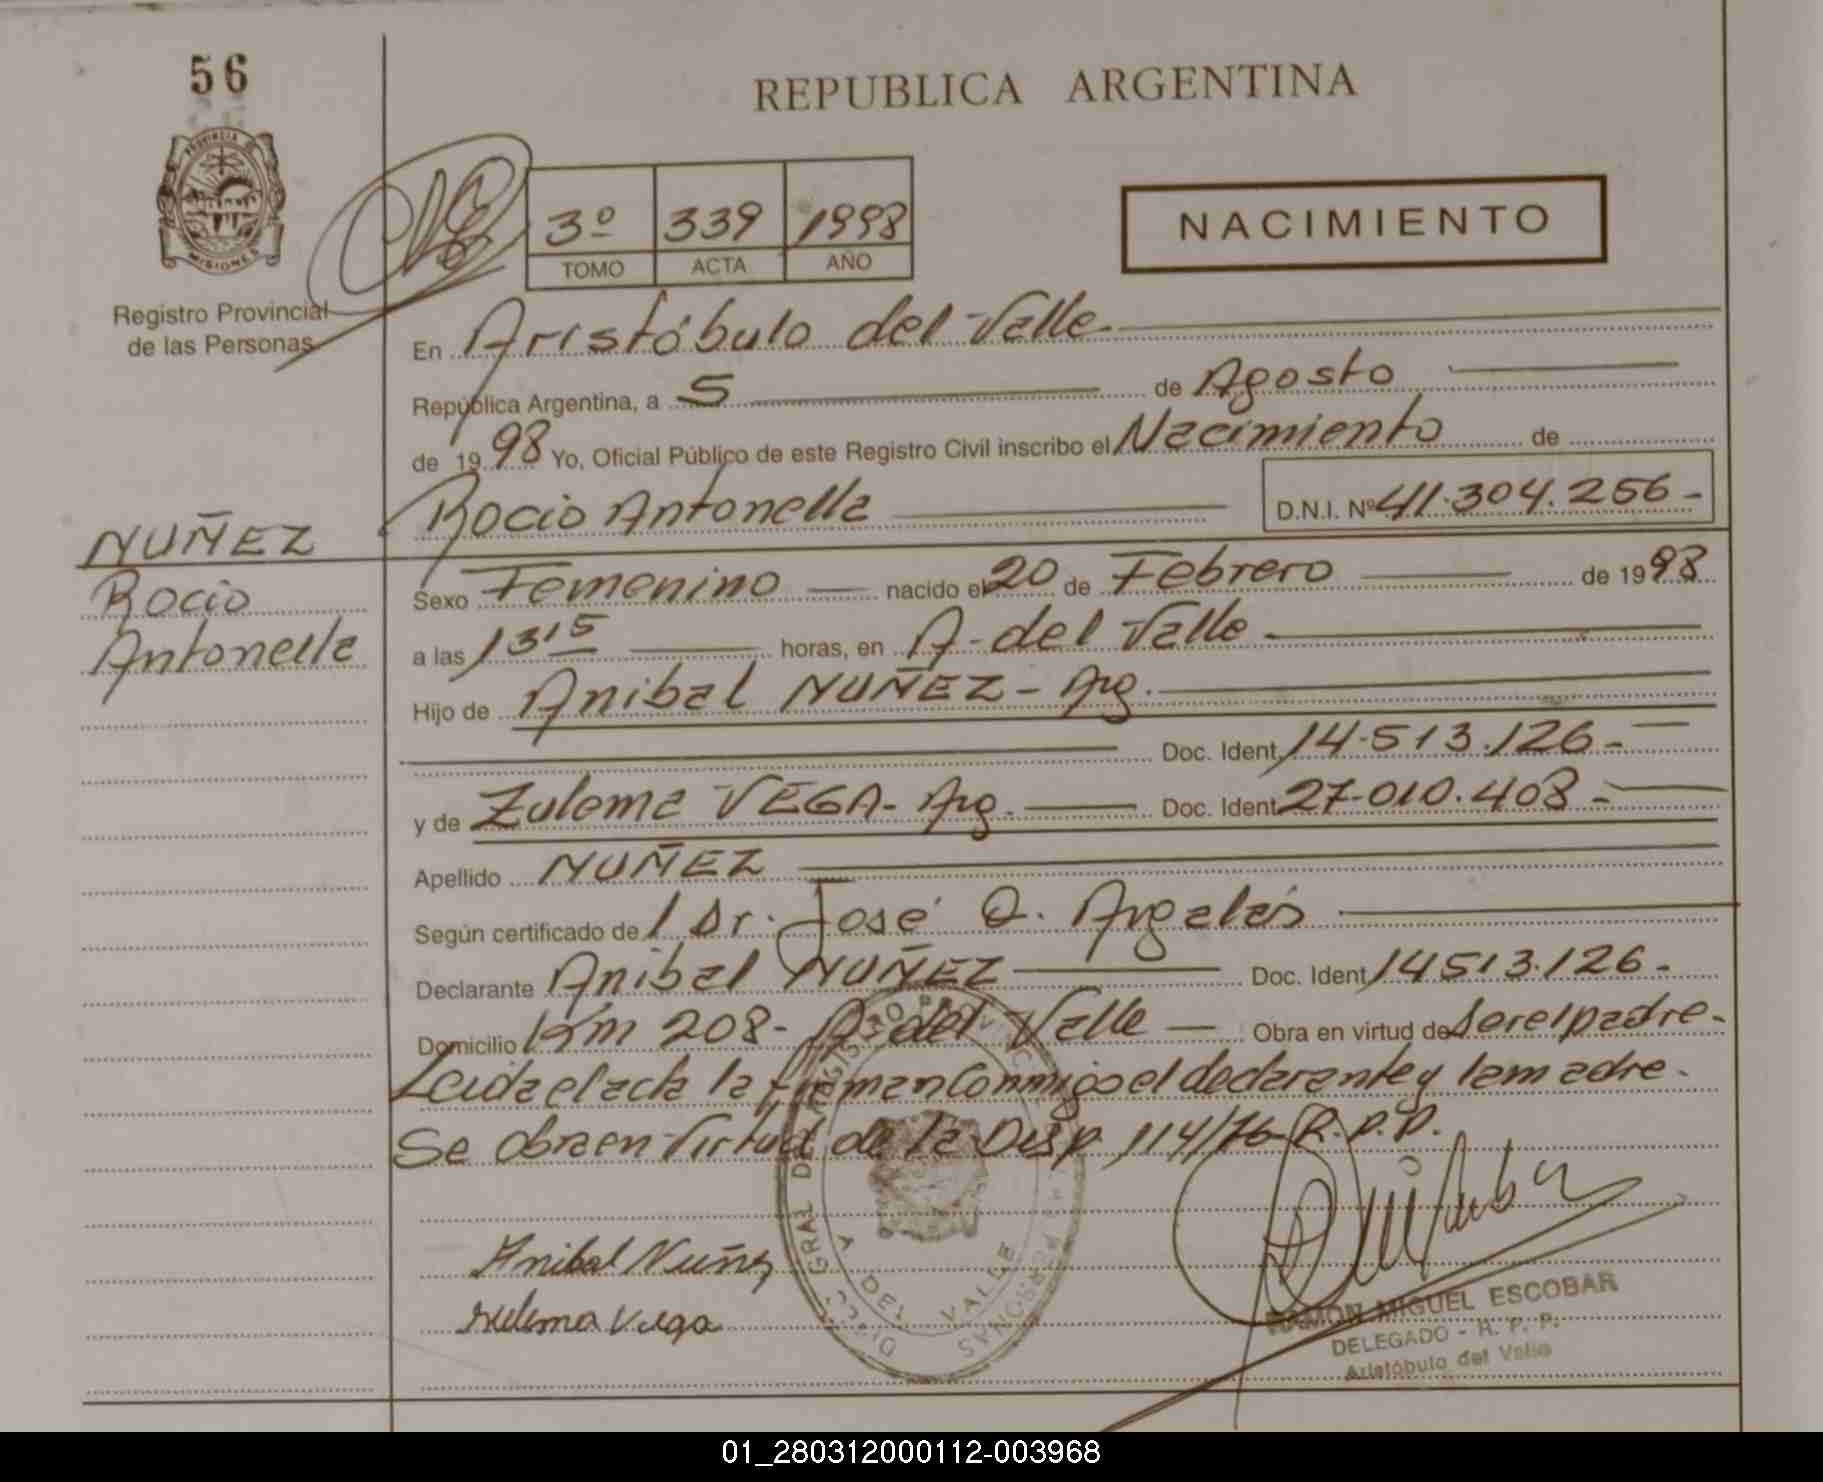 56
REPUBLICA ARGENTINA
PROVINCIA D
MISIONES
Registro Provincial
de las Personas
3º 339 1998
TOMO ACTA AÑO
NACIMIENTO
En Aristóbulo del Valle
República Argentina, a 5 de Agosto
de 1998 Yo, Oficial Público de este Registro Civil inscribo el Nacimiento de
Rocio Antonella D.N.I. Nº 41.304.256-
NUÑEZ
Rocio
Antonella
Sexo Femenino nacido el 20 de Febrero de 1998
a las 13 15 horas, en A. del Valle
Hijo de Anibal NUÑEZ - Arg.
Doc. Ident. 14.513.126-
y de Zulema VEGA - Arg. Doc. Ident. 27.010.408-
Apellido NUÑEZ
Según certificado del Dr. José O. Argalás
Declarante Anibal NUÑEZ Doc. Ident. 14513.126-
Domicilio Km 208 - A. del Valle Obra en virtud de ser el padre-
Leida el acta la firman conmigo el declarante y la madre-
Se obra en virtud de la Disp. 114/76 R.P.P.
Anibal Nuñez
Zulema Vega
DIRECC. GRAL DEL REGISTRO PROVINCIAL PERSONAS
A DEL VALLE
RAMON MIGUEL ESCOBAR
DELEGADO - R. P. P.
Aristóbulo del Valle
01_280312000112-003968